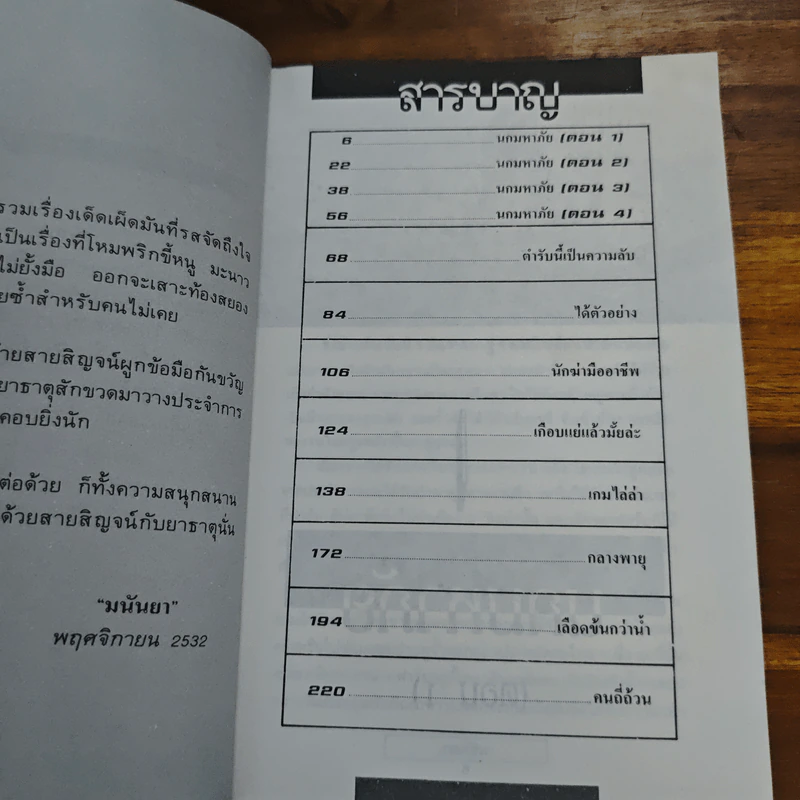 รวมเรื่องเด็ดเผ็ดมันที่รสจัดถึงใจ
เป็นเรื่องที่โหมพริกขี้หนู มะนาว
ไม่ยั้งมือ ออกจะเสาะท้องสยอง
ซ้ำสำหรับคนไม่เคย
สายสิญจน์ผูกข้อมือกันขวัญ
ยาธาตุสักขวดมาวางประจำการ
คอบยิ่งนัก
ต่อด้วย ก็ทั้งความสนุกสนาน
ด้วยสายสิญจน์กับยาธาตุนั่น
"มนันยา"
พฤศจิกายน 2532
สารบาญ
6 นกมหาภัย (ตอน 1)
22 นกมหาภัย (ตอน 2)
38 นกมหาภัย (ตอน 3)
56 นกมหาภัย (ตอน 4)
68 ตำรับนี้เป็นความลับ
84 ได้ตัวอย่าง
106 นักฆ่ามืออาชีพ
124 เกือบแย่แล้วมั้ยล่ะ
138 เกมไล่ล่า
172 กลางพายุ
194 เลือดข้นกว่าน้ำ
220 คนถี่ถ้วน